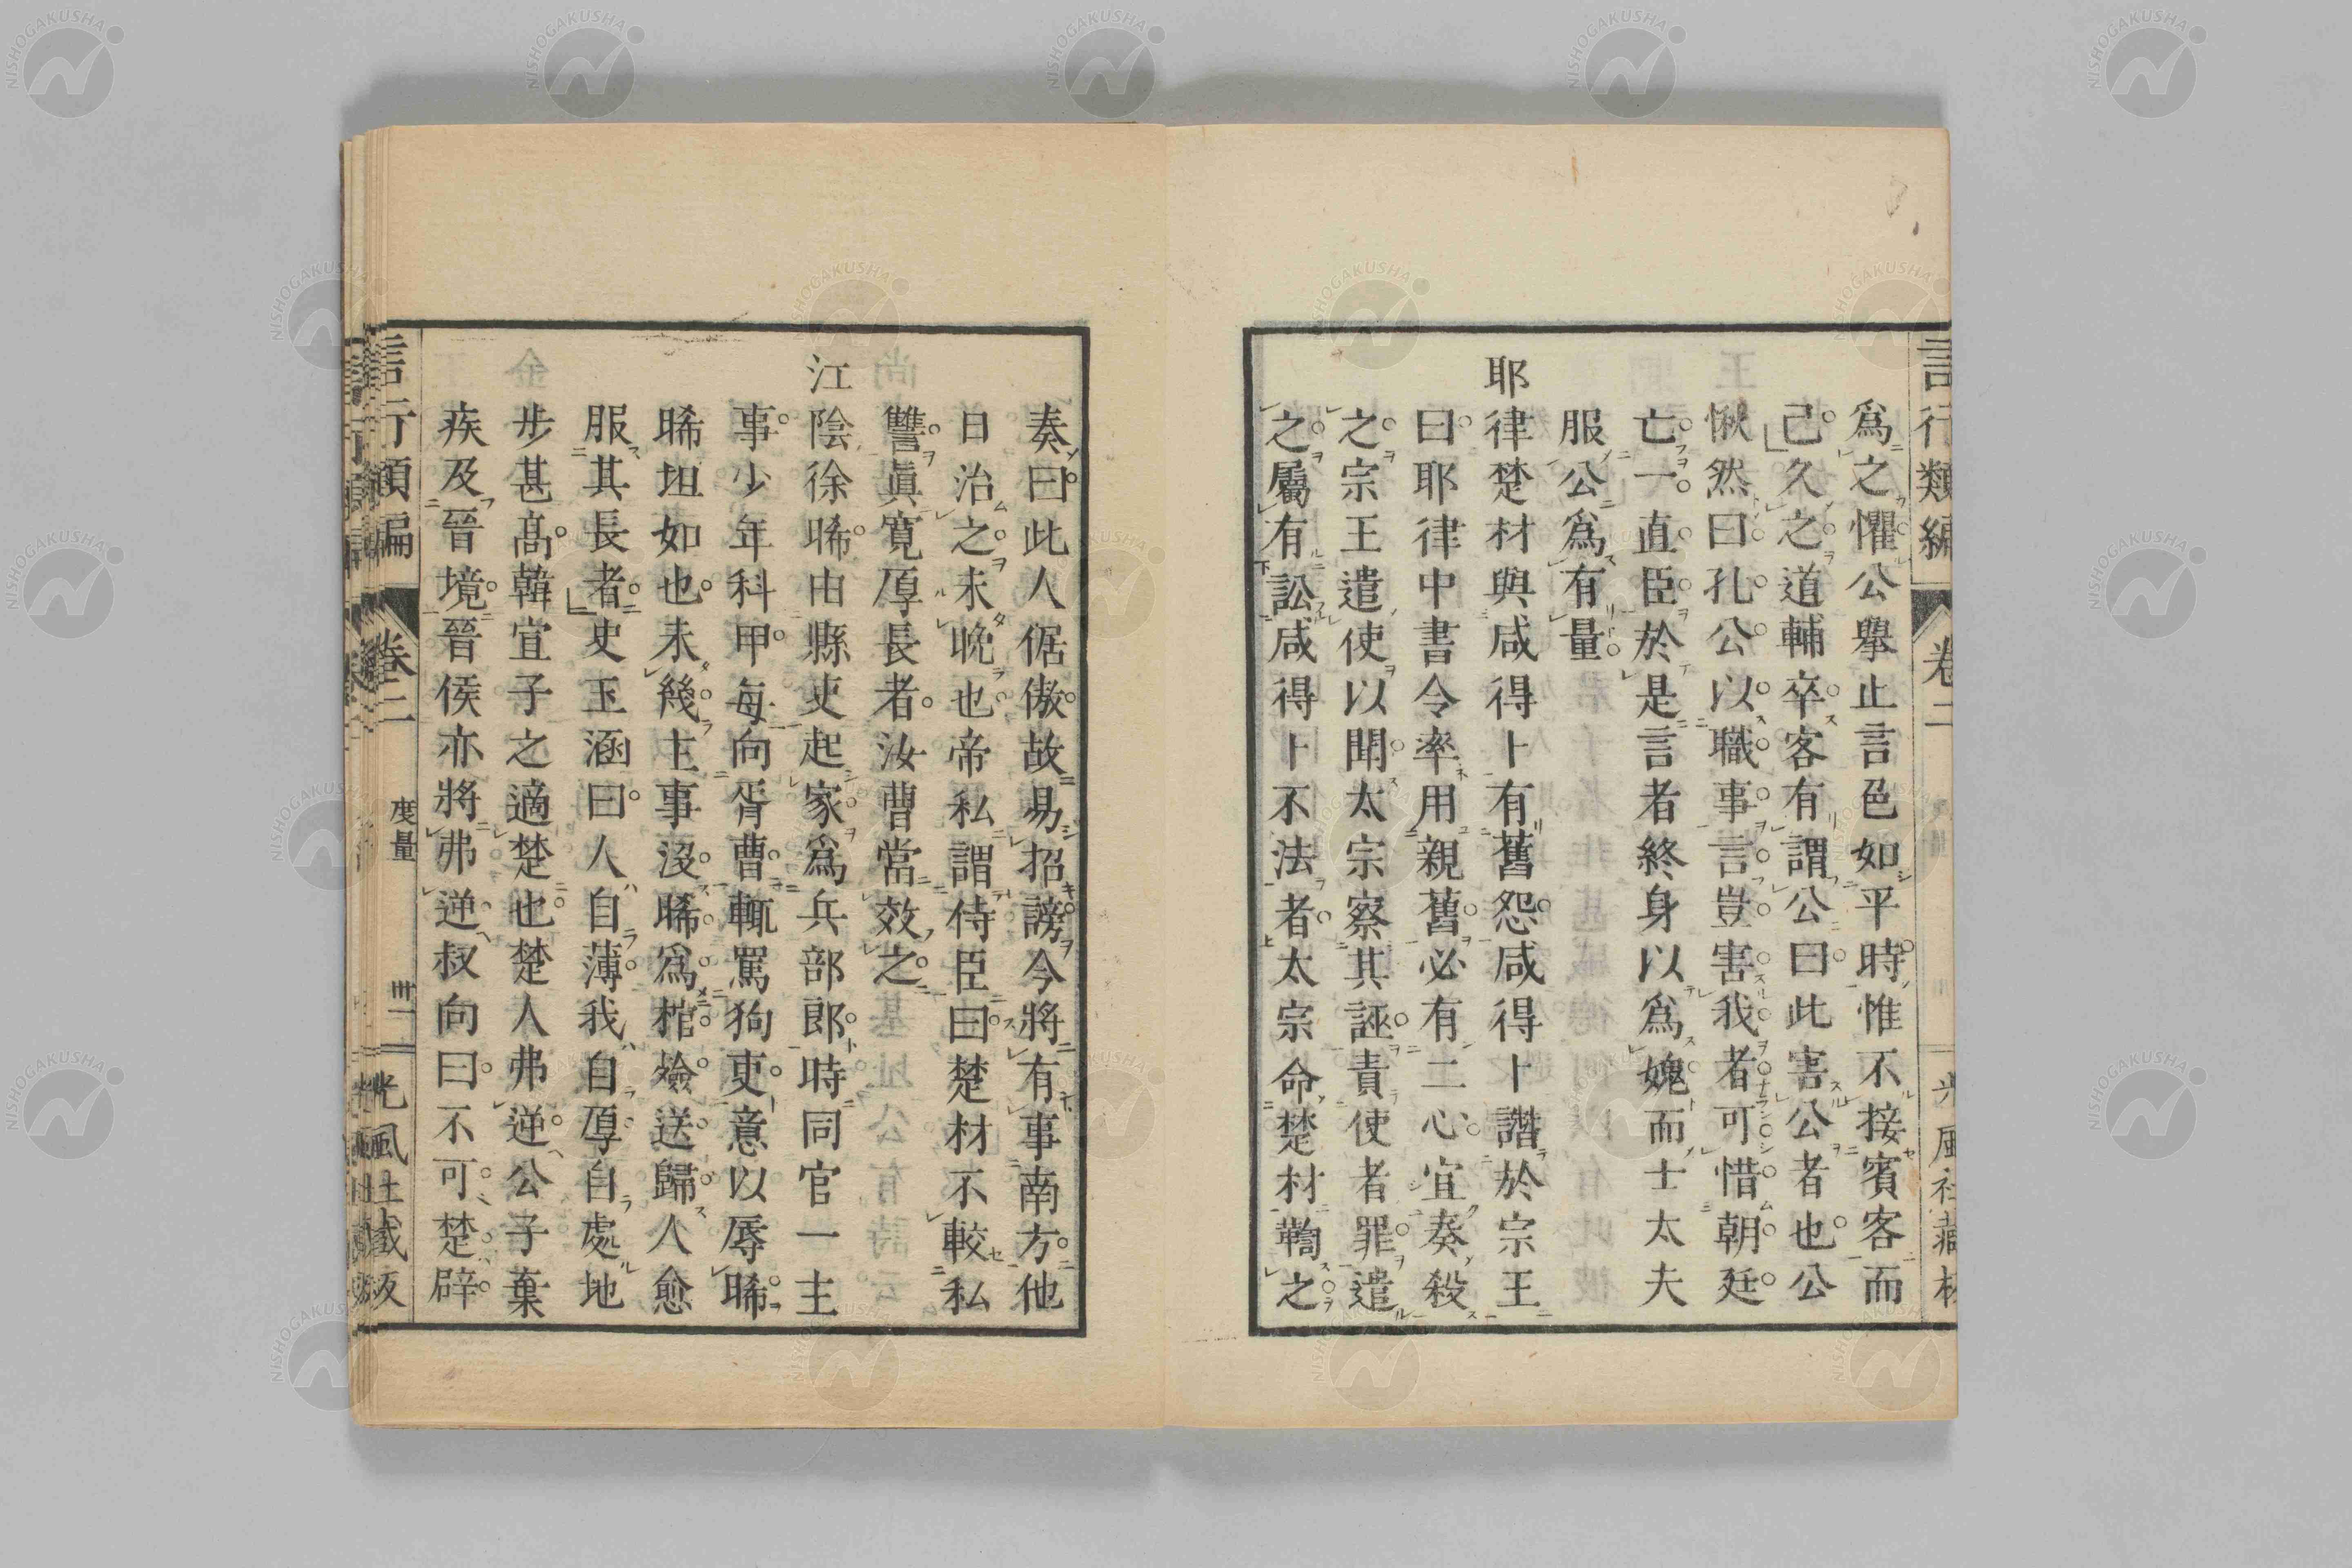 言行類編 卷二
爲之懼公擧止言色如平時惟不接賓客而
己久之道輔卒客有謂公曰此害公者也公
愀然曰孔公以職事言豈害我者可惜朝廷
亡一直臣於是言者終身以爲媿而士大夫
服公爲有量
耶律楚材與咸得卜有舊怨咸得卜譖於宗王
曰耶律中書令率用親舊必有二心宜奏殺
之宗王遣使以聞太宗察其誣責使者罪遣
之屬有訟咸得卜不法者太宗命楚材鞫之
奏曰此人倨傲故易招謗今將有事南方他
日治之未晩也帝私謂侍臣曰楚材不較私
讐眞寬厚長者汝曹當效之
江陰徐晞由縣吏起家爲兵部郎時同官一主
事少年科甲每向胥曹輒罵狗吏意以辱晞
晞坦如也未幾主事沒晞爲棺殮送歸人愈
服其長者史玉涵曰人自薄我自厚自處地
步甚高韓宣子之適楚也楚人弗逆公子棄
疾及晉境晉侯亦將弗逆叔向曰不可楚辟
言行類編 卷二 度量 卅一 光風社藏板
NISHOGAKUSHA